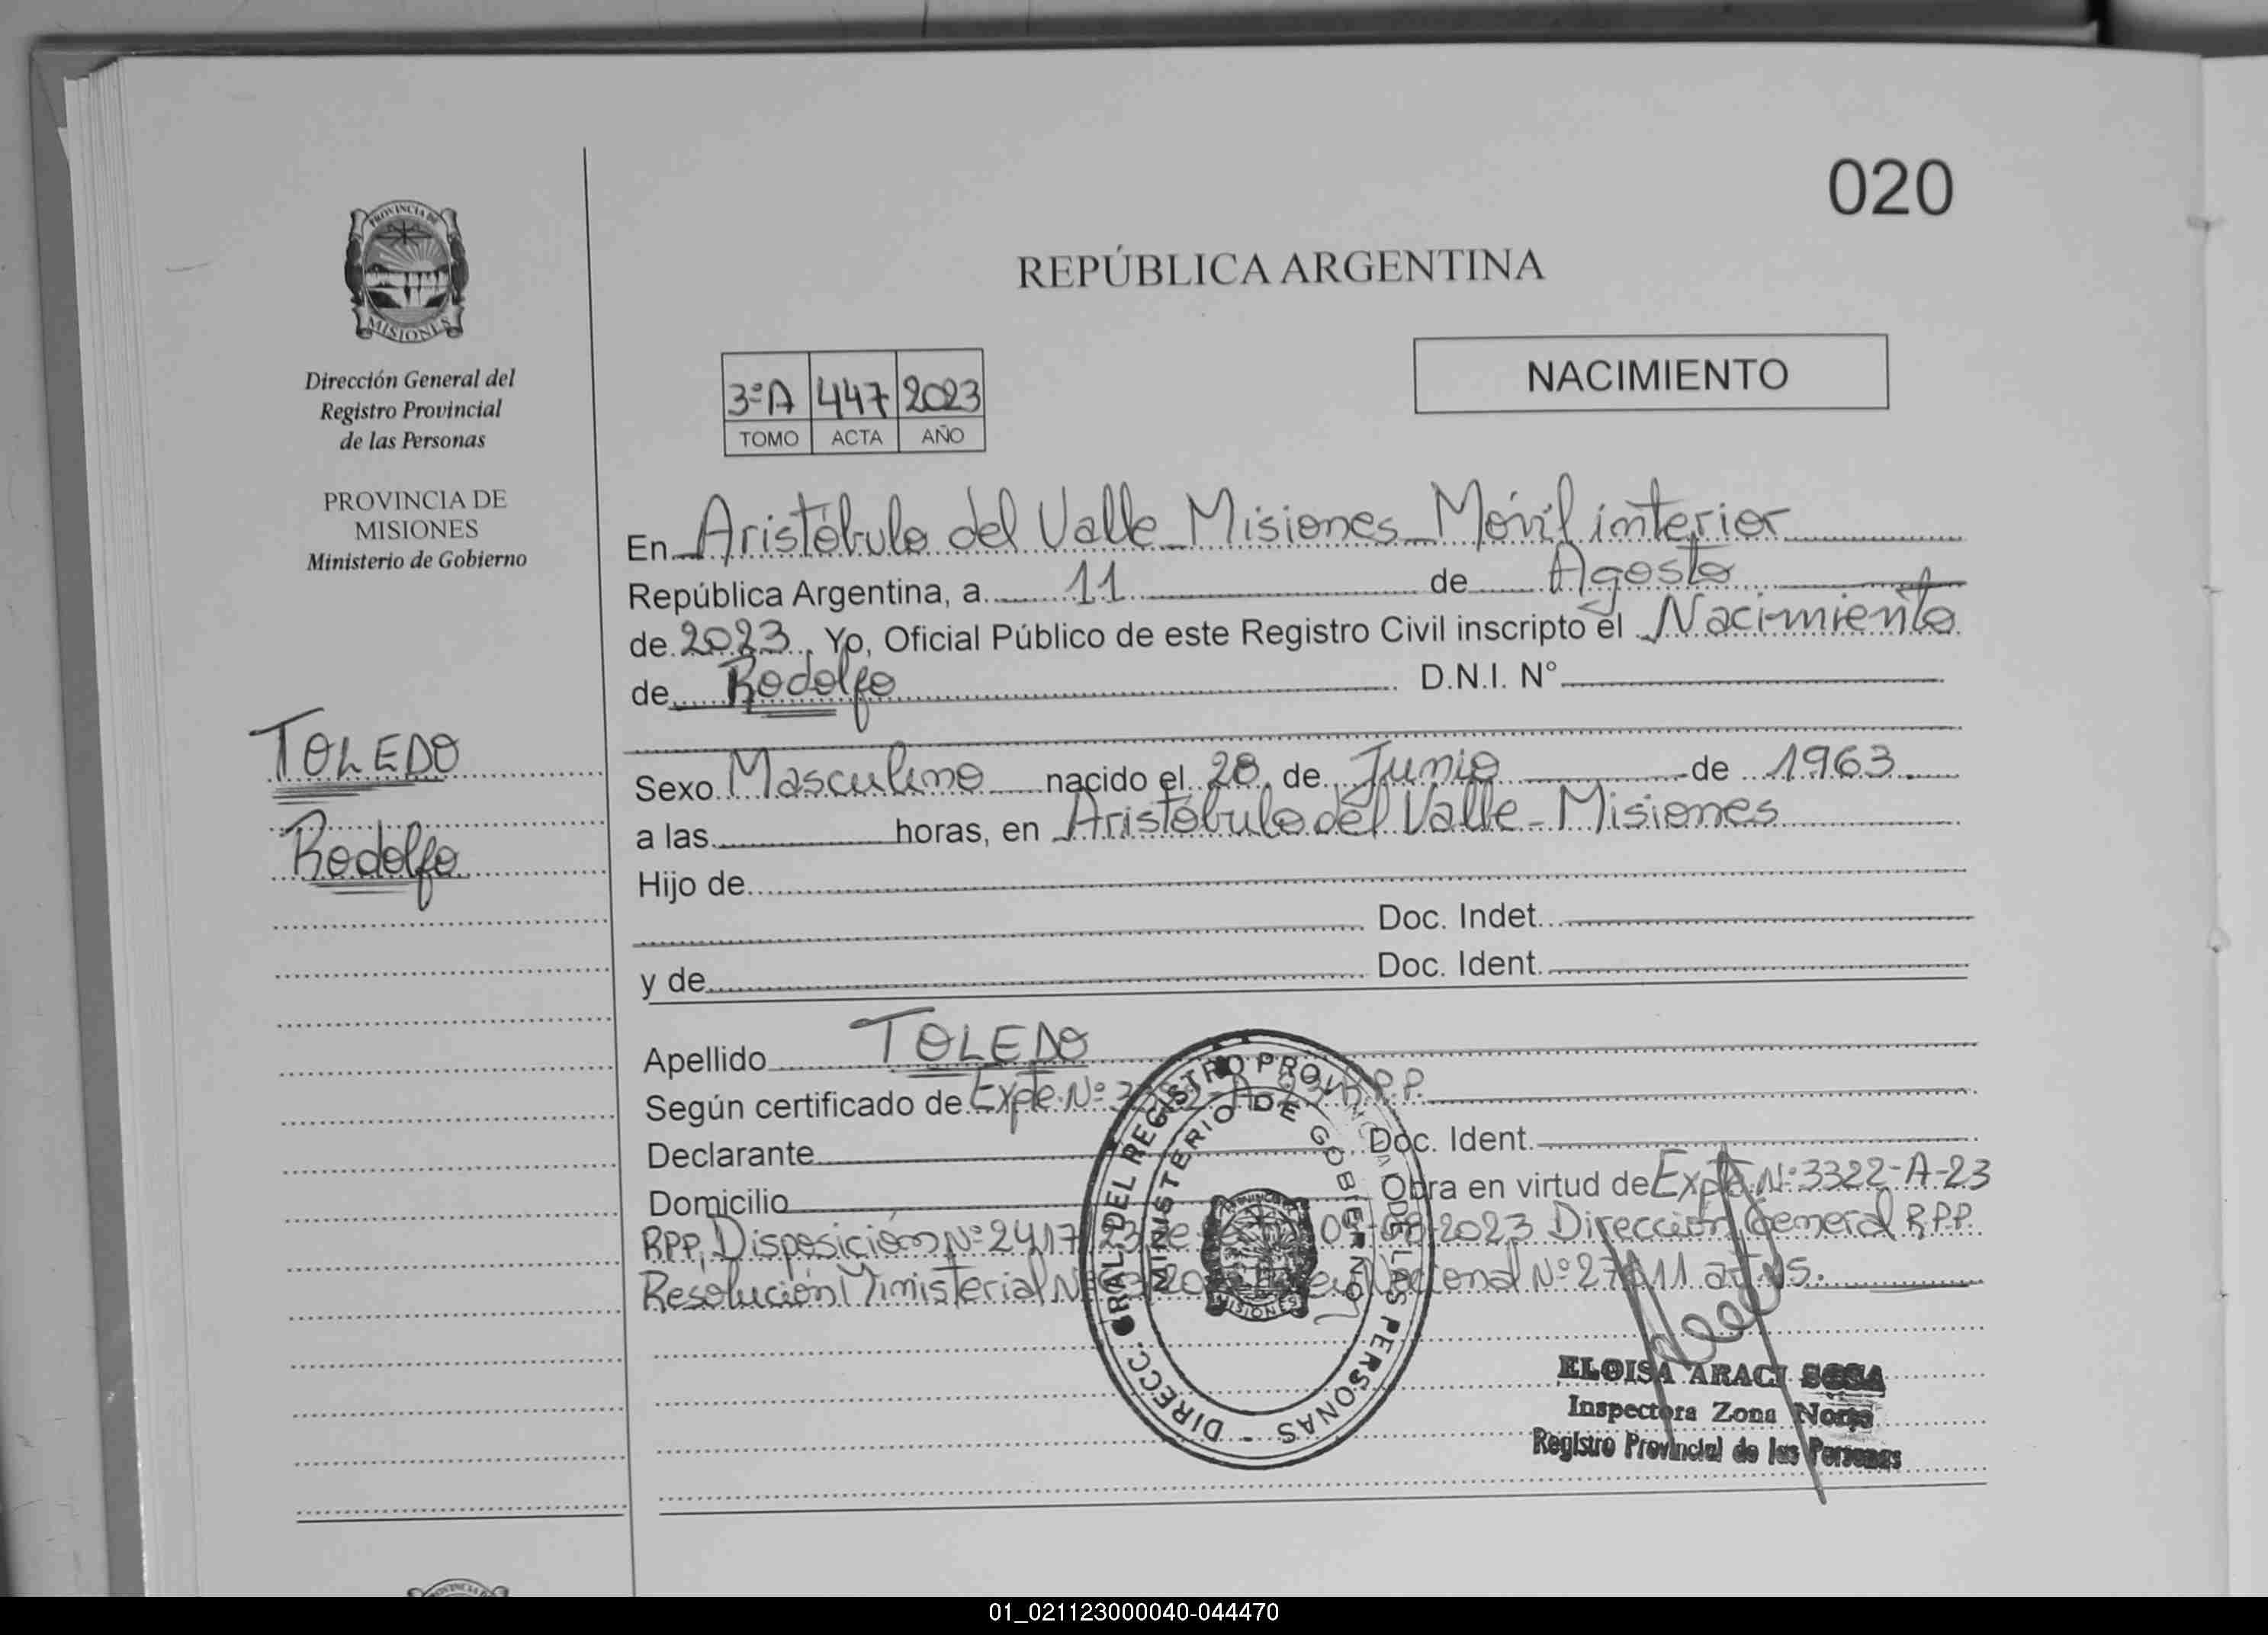 020
PROVINCIA DE
MISIONES
Dirección General del
Registro Provincial
de las Personas
PROVINCIA DE
MISIONES
Ministerio de Gobierno
TOLEDO
Rodolfo
REPÚBLICA ARGENTINA
NACIMIENTO
3ºA 447 2023
TOMO ACTA AÑO
En Aristóbulo del Valle - Misiones - Móvil interior
República Argentina, a 11 de Agosto
de 2023. Yo, Oficial Público de este Registro Civil inscripto el Nacimiento
de Rodolfo D.N.I. N°
Sexo Masculino nacido el 28 de Junio de 1963.
a las horas, en Aristóbulo del Valle - Misiones
Hijo de
Doc. Indet.
y de Doc. Ident.
Apellido TOLEDO
Según certificado de Expte. Nº A-23 R.P.P.
Declarante Doc. Ident.
Domicilio Obra en virtud de Expte Nº 3322-A-23
RPP, Disposición Nº 2417 23 2023 Dirección General R.P.P.
Resolución Ministerial Nacional Nº
DIRECC. GRAL. DEL REGISTRO PROVINCIAL DE LAS PERSONAS -
MINISTERIO DE GOBIERNO
MISIONES
ELOISA ARACI SOSA
Inspectora Zona Norte
Registro Provincial de las Personas
01_021123000040-044470